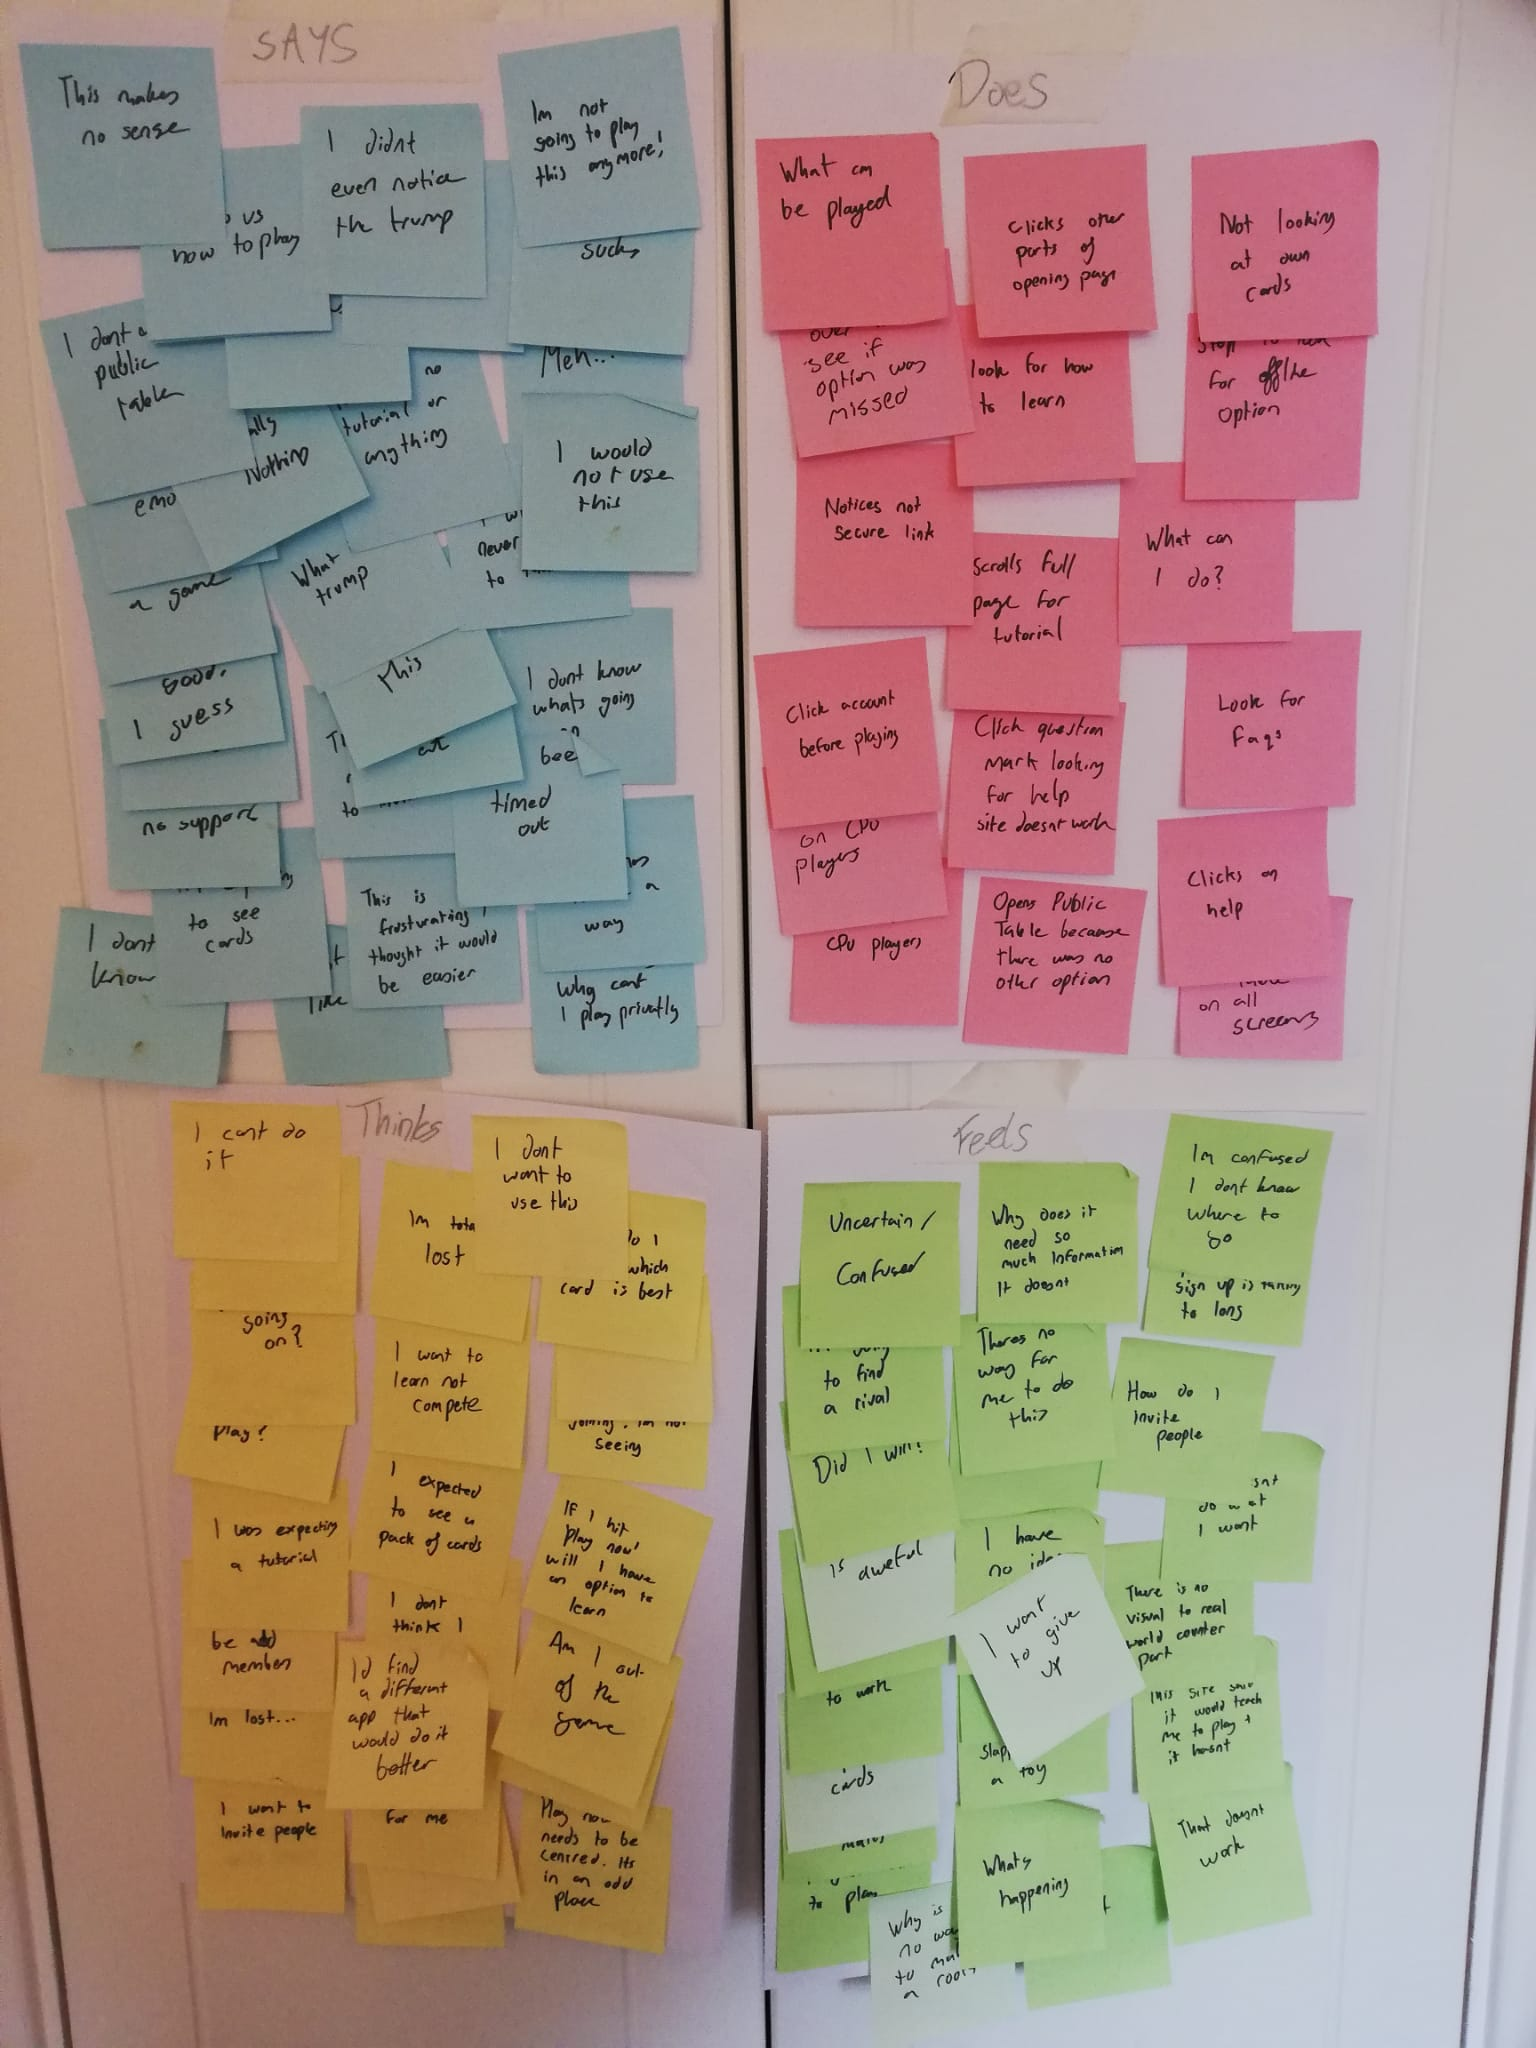 SAYS
This makes
no sense
us
how to play
I didnt
even notice
the trump
Im not
going to play
this anymore!
sucks
I dont
public
table
Meh...
no
tutorial or
anything
Nothing
I would
not use
this
emo
a game
What
trump
never
to
good,
I guess
this
I dont know
whats going
on
bee
timed
out
to
no support
to see
cards
This is
frusturating I
thought it would
be easier
a
way
I dont
know
like
Why cant
I play privatly
Does
What can
be played
Clicks other
parts of
opening page
Not looking
at own
cards
over
see if
option was
missed
look for how
to learn
for offline
option
Notices not
secure link
Scrolls full
page for
tutorial
What can
I do?
Click account
before playing
Click question
mark looking
for help
site doesnt work
Look for
faqs
on CPU
players
Clicks on
help
CPU players
Opens Public
Table because
there was no
other option
on all
screens
Thinks
I cant do
it
Im
lost
I dont
want to
use this
I
which
card is best
going
on?
I want to
learn not
compete
play?
seeing
I was expecting
a tutorial
I expected
to see a
pack of cards
If I hit
play now!
will I have
an option to
learn
be add
members
I dont
think I
Id find
a different
app that
would do it
better
Am I out
of the
game
Im lost...
I want to
invite people
for me
needs to be
centred. Its
in an odd
place
Feels
Uncertain /
Confused
Why does it
need so
much information
It doesnt
Im confused
I dont know
where to
go
sign up is taking
to long
to find
a rival
Theres no
way for
me to do
this
How do I
invite
people
Did I win?
I want
is aweful
I have
no
I want
to give
up
There is no
visual to real
world counter
part
to work
This site
it would teach
me to play +
it hasnt
a toy
cards
That doesnt
work
to play
Whats
happening
Why is
no
to
a room